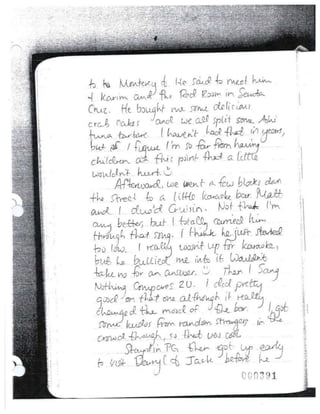 to to Monterey & He said to meet him
& Karim and the Red Room in Santa
Cruz. He bought me some delicious
crab cakes and we all split some Ahi
tuna tartare. I haven't had that in years,
but I figure I'm so far from having
children at this point that a little
wouldn't hurt. ☺
Afterward, we went a few blocks down
the street to a little karaoke bar. Matt
and I duo'd Cruisin. Not that I'm
any better, but I totally carried him
through that song. I think he just started
too low. I really wasn't up for karaoke,
but he bullied me into it. Wouldn't
take no for an answer. ☺ Then I sang
Nothing Compares 2U. I did pretty
good on that one although it really
changed the mood of the bar. I got
some kudos from random strangers in the
crowd though, so that was cool.
Stayed in PG then got up early
to visit Darryl & Jack before he
000391